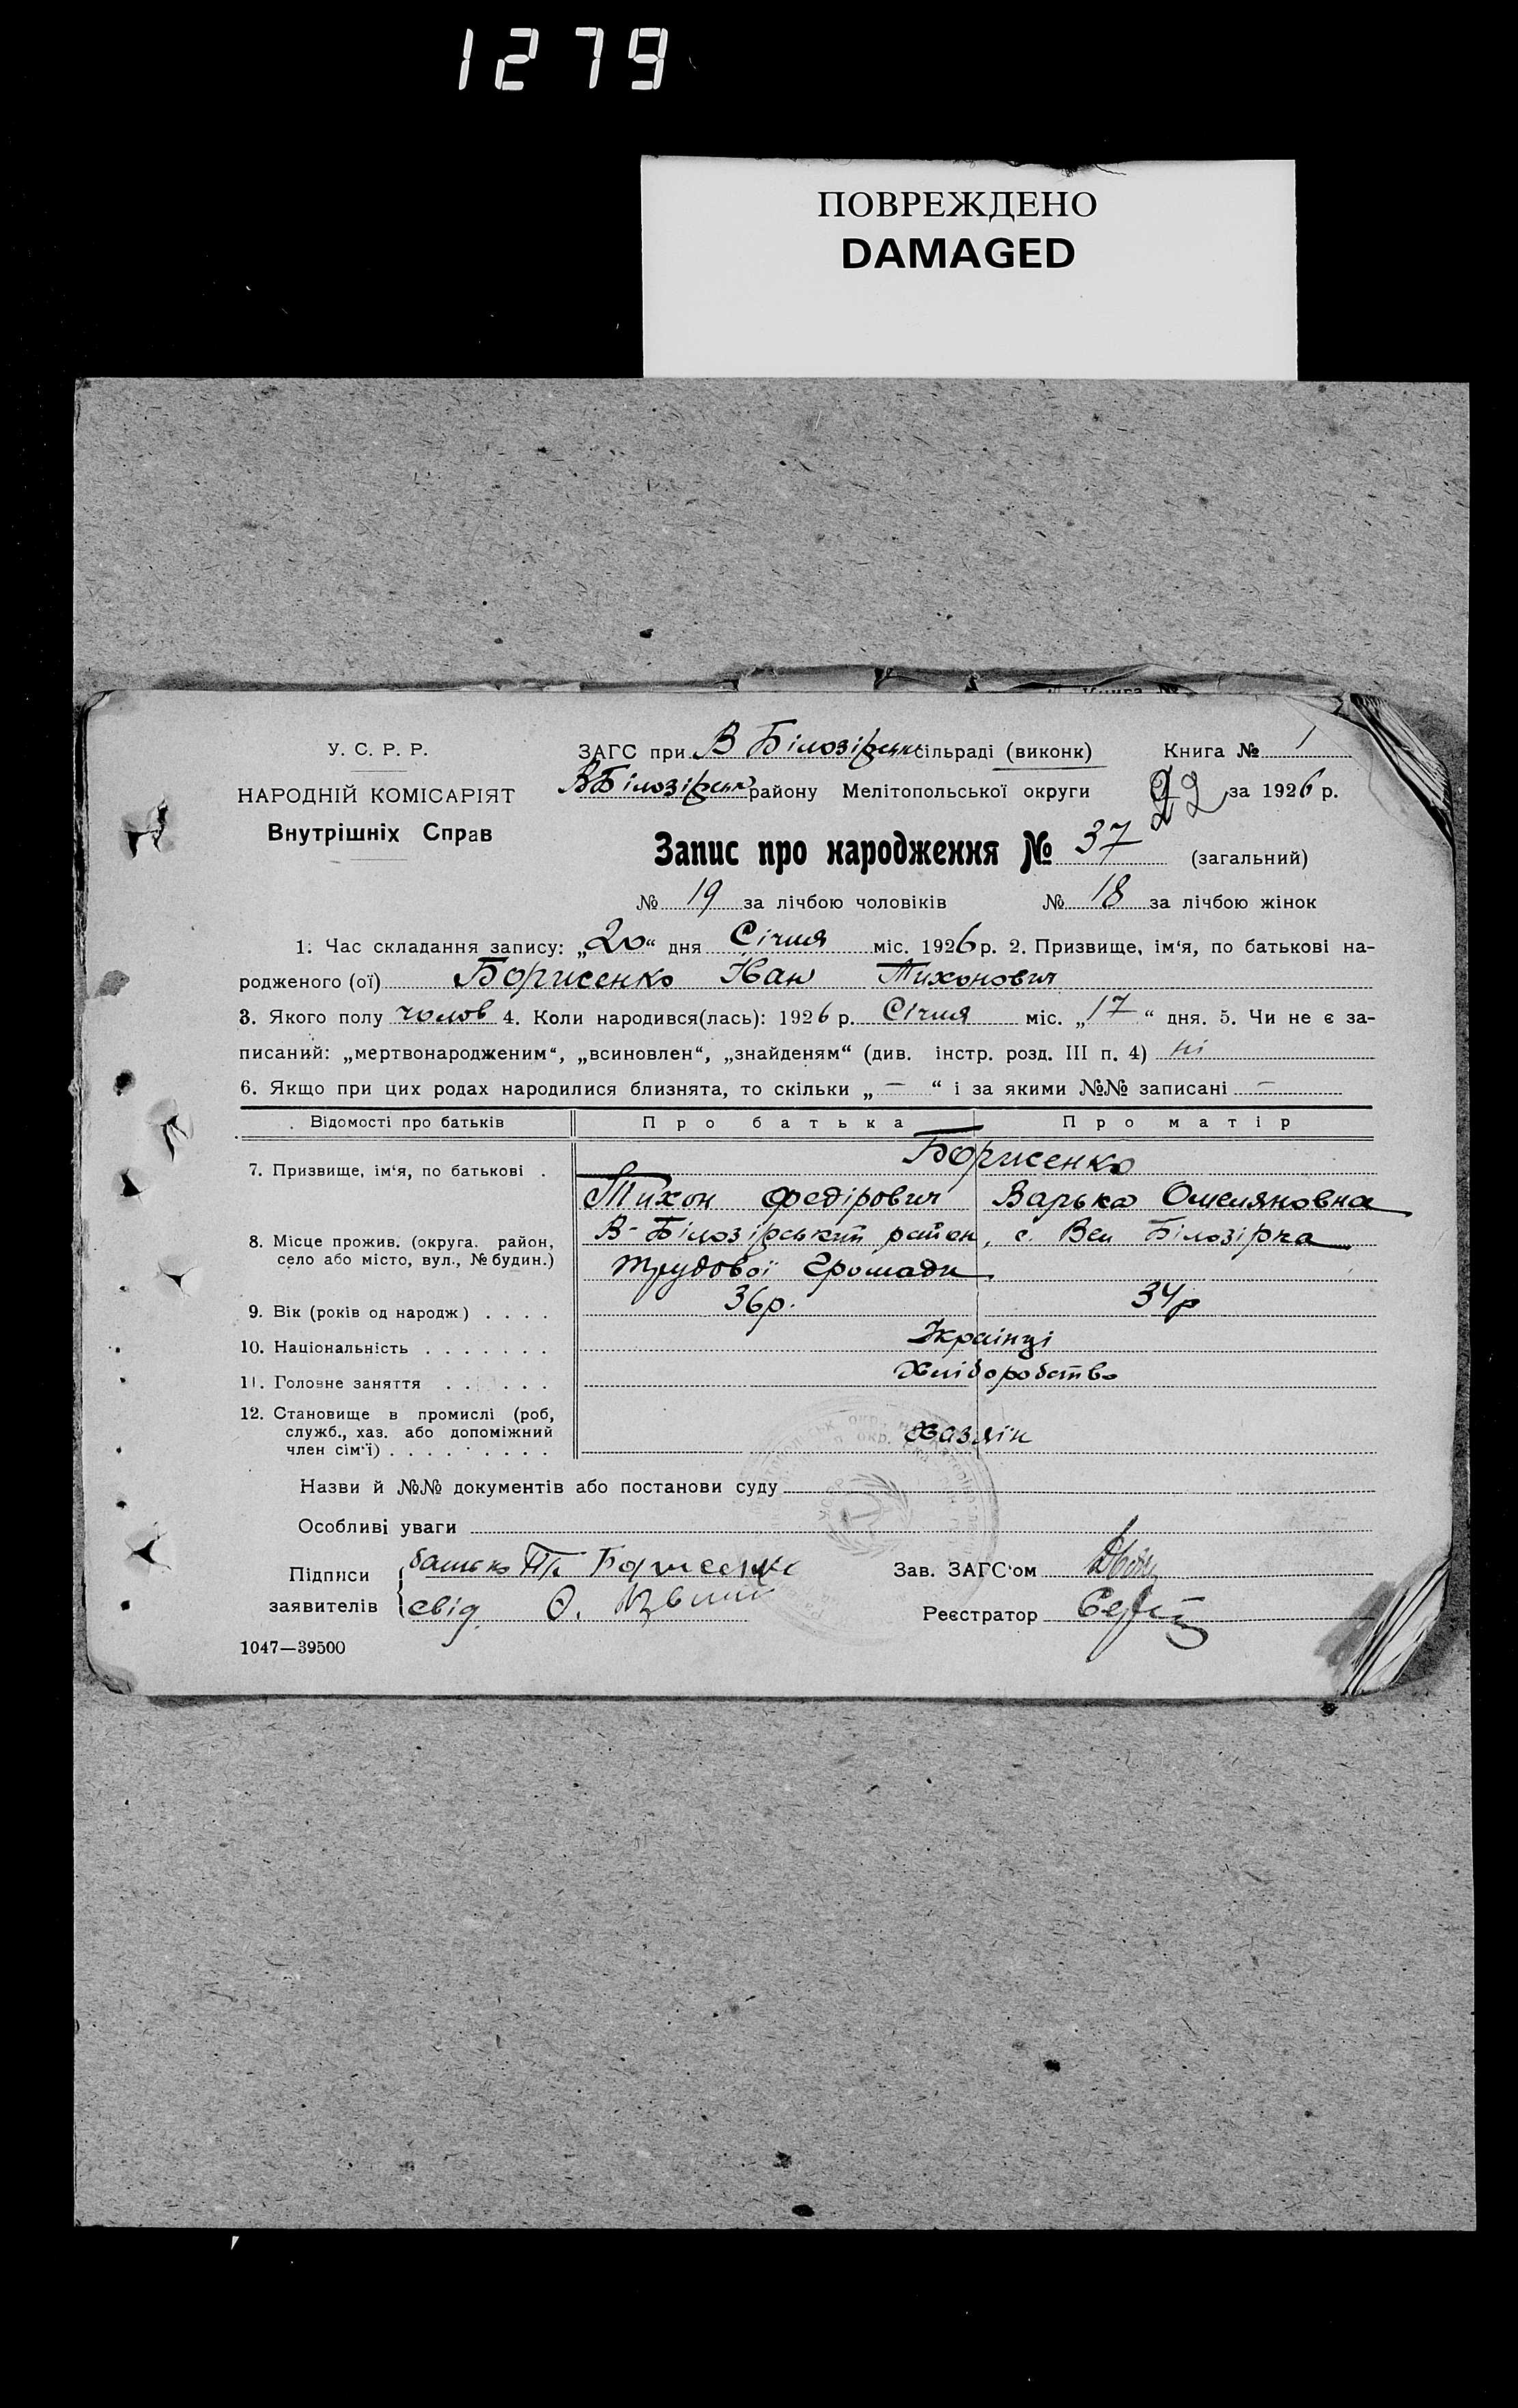 1279
ПОВРЕЖДЕНО
DAMAGED
У. С. Р. Р.
НАРОДНІЙ КОМІСАРІЯТ
Внутрішніх Справ
ЗАГС при В Білозірськ сільраді (виконк) Книга № 1
В Білозірськ району Мелітопольської округи 22 за 1926 р.
Запис про народження № 37 (загальний)
№ 19 за лічбою чоловіків № 18 за лічбою жінок
1. Час складання запису: „20“ дня Січня міс. 1926 р. 2. Призвище, ім'я, по батькові на-
родженого (ої) Борисенко Іван Тихонович
3. Якого полу чолов 4. Коли народився(лась): 1926 р. Січня міс. „17“ дня. 5. Чи не є за-
писаний: „мертвонародженим“, „всиновлен“, „знайденям“ (див. інстр. розд. III п. 4) ні
6. Якщо при цих родах народилися близнята, то скільки „—“ і за якими №№ записані —
Відомості про батьків Про батька Про матір
7. Призвище, ім'я, по батькові . Борисенко
Тихон Федірович Варька Омеляновна
8. Місце прожив. (округа. район, село або місто, вул., № будин.) В-Білозірський район, с. Вел Білозірка
Трудової Громади
9. Вік (років од народж) . . . . 36р. 34р
10. Національність . . . . . . . Українці
11. Головне заняття . . . . . . Хліборобство
12. Становище в промислі (роб,
служб., хаз. або допоміжний
член сім'ї) . . . . . . . . . Хазяїн
Назви й №№ документів або постанови суду
Особливі уваги
Підписи заявителів батько Борисенко
свід. О.
Зав. ЗАГС'ом
Реєстратор
1047—39500